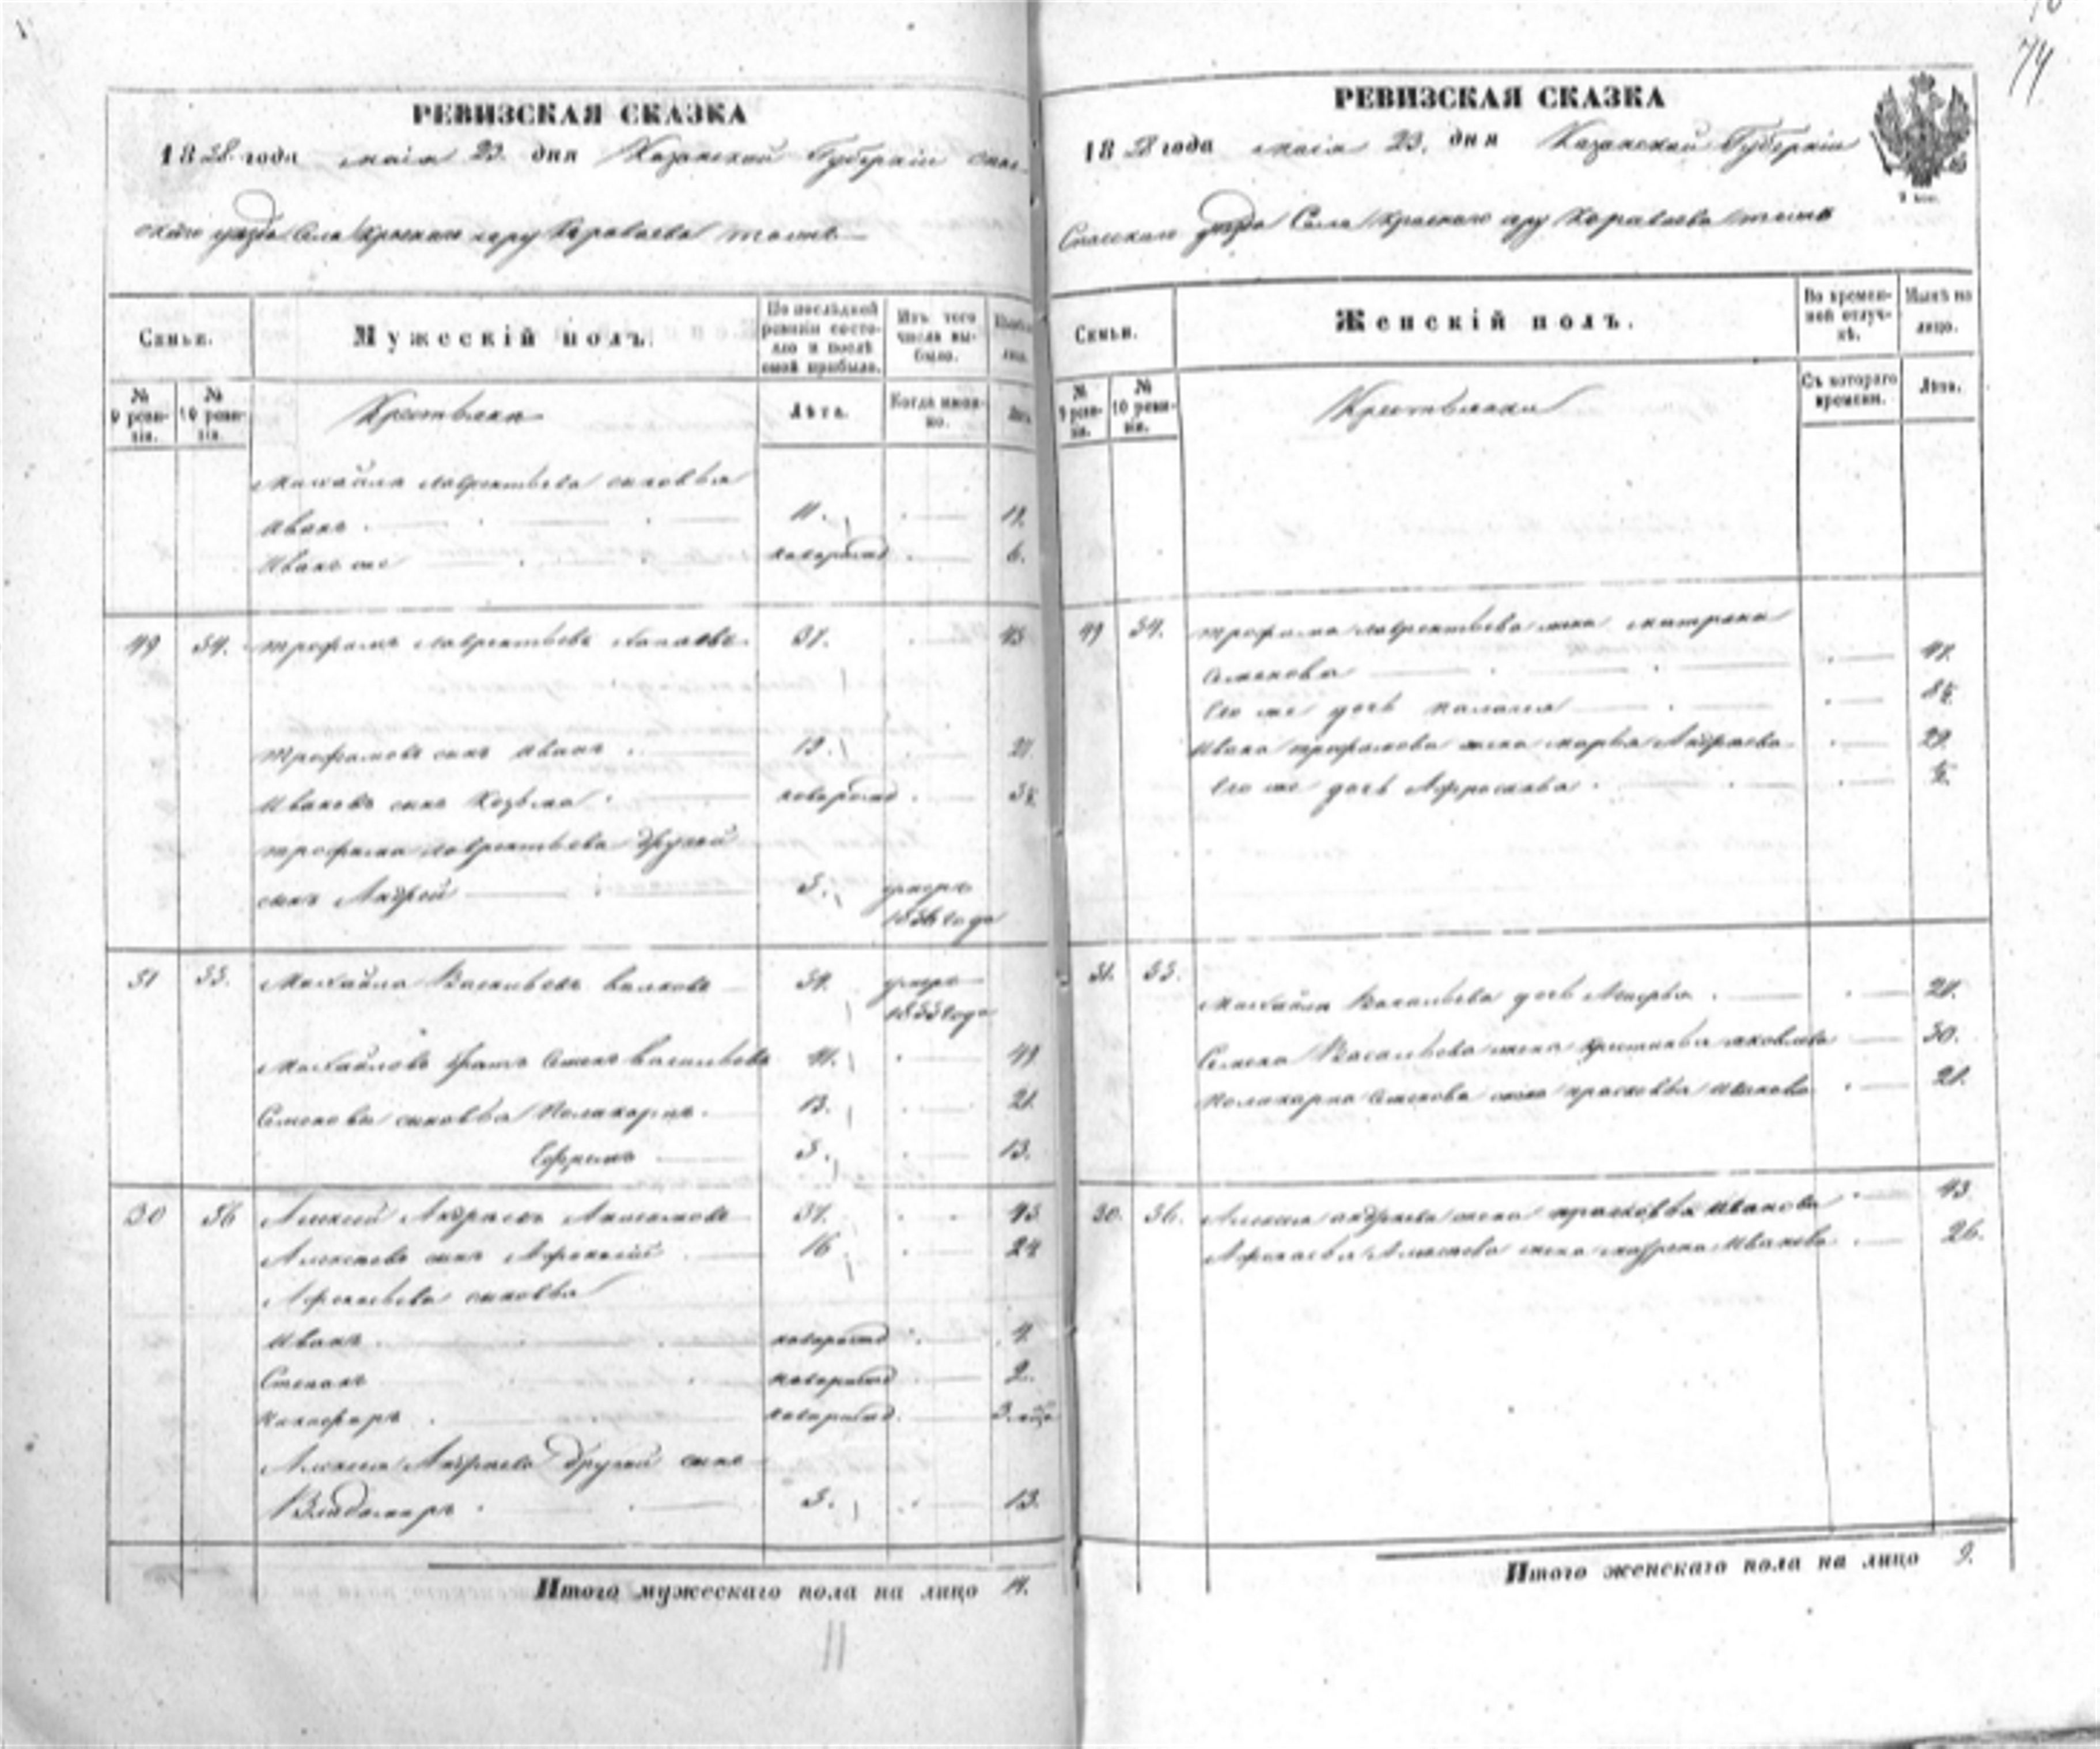 74
РЕВИЗСКАЯ СКАЗКА
1858 года маія 23. дня Казанской Губерніи Спас-
скаго уѣзда Села Красного яру Караваева тожъ
Семьи.
Мужескій полъ.
По послѣдней ревизіи состояло и послѣ оной прибыло.
Изъ того числа выбыло.
лицо.
№ 9 ревизіи.
№ 10 ревизіи.
Крестьяне
Лѣта.
Когда именно.
Лѣта.
Михайла Лаврентьева сыновья
Иванъ 11. 19.
Иванъ же новорожд 6.
49 34. Трофимъ Лаврентьевъ 37. 45
Трофимовъ сынъ Иванъ 13. 21
Ивановъ сынъ Козьма новорожд
Трофима Лаврентьева другой
сынъ Андрей 5. умеръ
1856 года
51 35. Михайла Васильевъ 39. умеръ
1855 года
Михайловъ братъ Семенъ Васильевъ 41. 49
Семеновы сыновья Поликарпъ 13. 21.
Ефремъ 5. 13.
50 36 Алексей Андреевъ 37. 45
Алексеевъ сынъ Афонасій 16 24
Афонасьева сыновья
Иванъ новорожд 4.
Степанъ новорожд 2.
Никифоръ новорожд
Алексея Андреева другой сынъ
Владимиръ 5. 13.
Итого мужескаго пола на лицо 11.
11
РЕВИЗСКАЯ СКАЗКА
1858 года маія 23. дня Казанской Губерніи
Спасскаго уѣзда Села Красного яру Караваева тожъ
Семьи.
Женскій полъ.
Во временной отлучкѣ.
Нынѣ на лицо.
№ 9 ревизіи.
№ 10 ревизіи.
Крестьянки
Съ котораго времени.
Лѣта.
49 34. Трофима Лаврентьева жена Матрена
Семенова
Его же дочь Палагея
Ивана Трофимова жена Марья Андреева
Его же дочь Афросинья
51. 35.
Михайлы Васильева дочь Марфа 21.
Семена Васильева жена Кристинья Яковлева 50.
Поликарпа Семенова жена Прасковья Иванова 21.
50. 36. Алексея Андреева жена Прасковья Иванова 43
Афонасья Алексеева жена Матрена Иванова 26.
Итого женскаго пола на лицо 9.